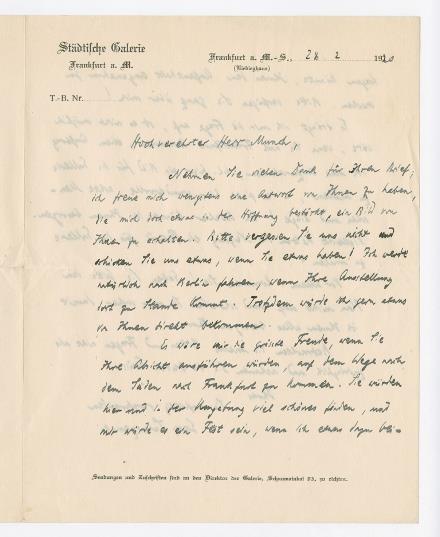 Städtische Galerie
Frankfurt a. M.
Frankfurt a. M.-S., 28 2 1920
(Liebieghaus)
T.-B. Nr.
Hochverehrter Herr Munch,
Nehmen Sie vielen Dank für Ihren Brief;
ich freue mich wenigstens eine Antwort von Ihnen zu haben,
die mich doch etwas in der Hoffnung bestärkt, ein Bild von
Ihnen zu erhalten. Bitte vergessen Sie uns nicht und
schicken Sie uns etwas, wenn Sie etwas haben! Ich werde
natürlich nach Berlin fahren, wenn Ihre Ausstellung
dort zu Stande kommt. Trotzdem würde ich gern etwas
von Ihnen direkt bekommen.
Es wäre mir die grösste Freude, wenn Sie
Ihre Absicht ausführen würden, auf dem Wege nach
dem Süden nach Frankfurt zu kommen. Sie würden
hier und in der Umgebung viel schönes finden, und
mir würde es ein Fest sein, wenn ich etwas dazu bei-
Sendungen und Zuschriften sind an den Direktor der Galerie, Schaumainkai 83, zu richten.